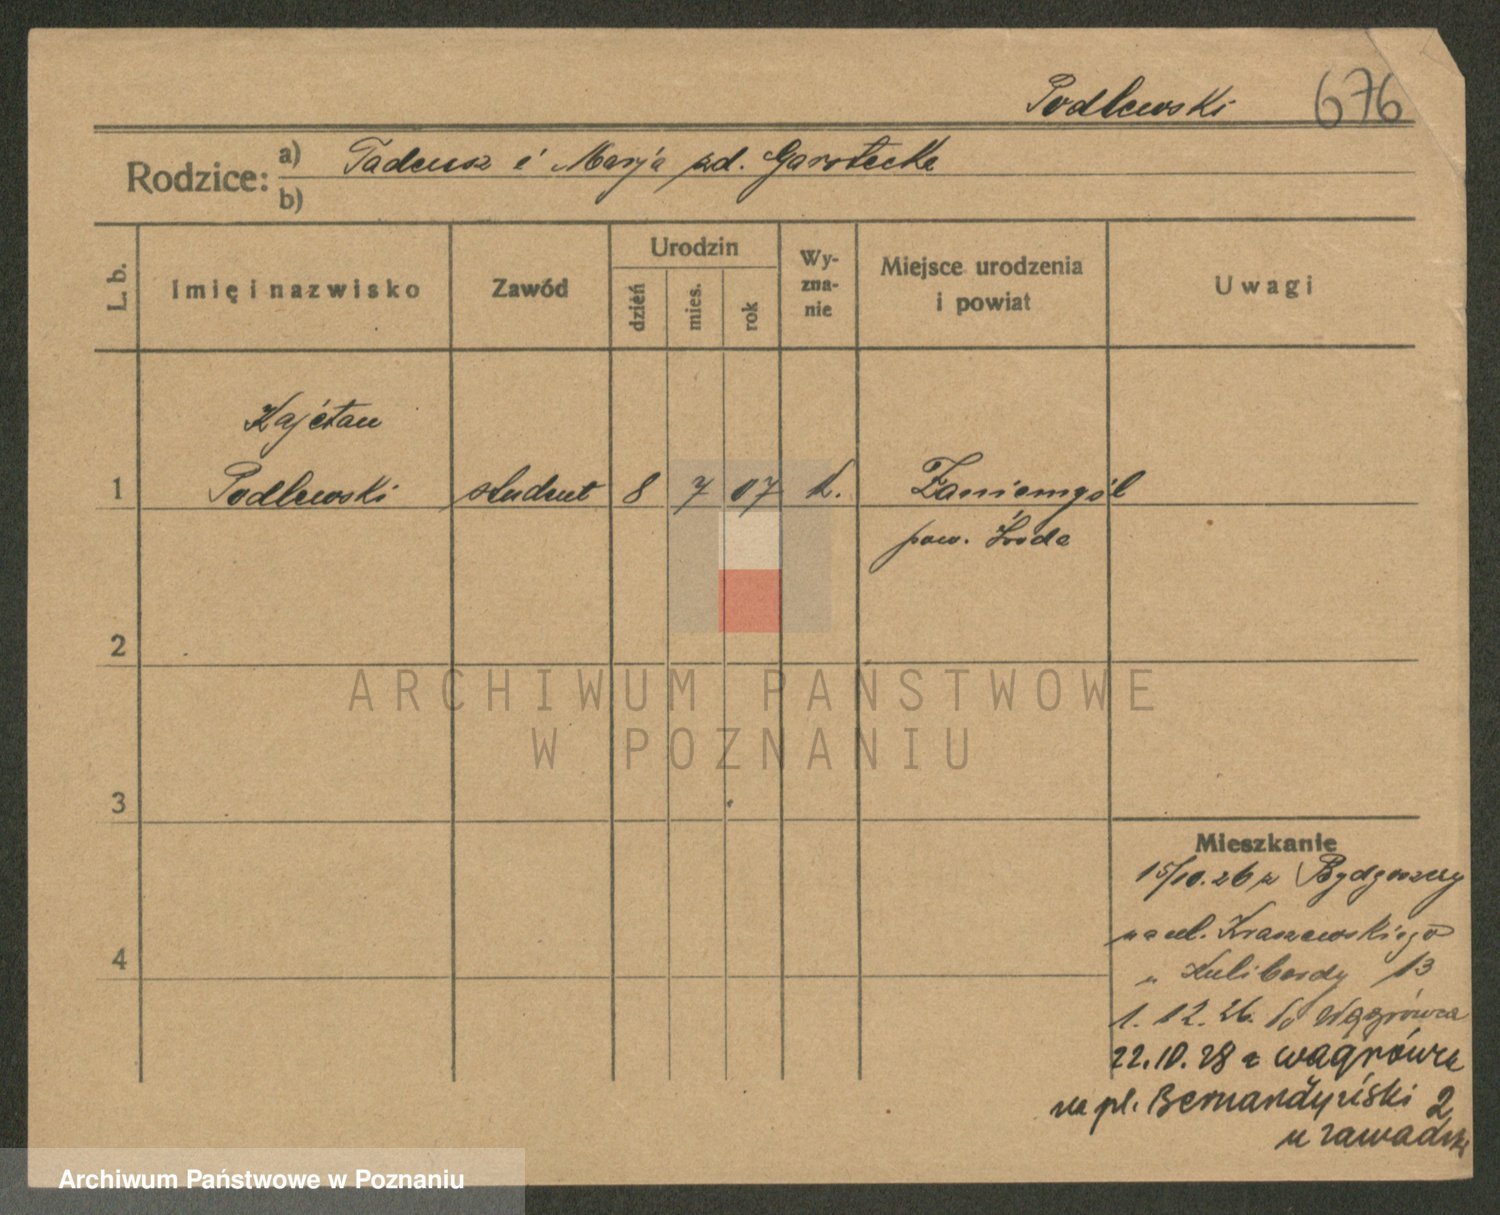 Podlewski 676
Rodzice: a) Tadeusz i Marja zd. Garstecka
b)
L. b. Imię i nazwisko Zawód Urodzin dzień mies. rok Wy-zna-nie Miejsce urodzenia i powiat Uwagi
Kajetan
1 Podlewski student 8 7 07 k. Zaniemyśl
pow. Środa
2
ARCHIWUM PAŃSTWOWE
W POZNANIU
3
Mieszkanie
15/10.26 z Bydgoszczy
na ul. Kraszewskiego
4
u Kulibardy 13
1. 12. 26. do Wągrówca
22.10.28 z Wągrówca
na pl. Bernardyński 2
u Zawadzki
Archiwum Państwowe w Poznaniu